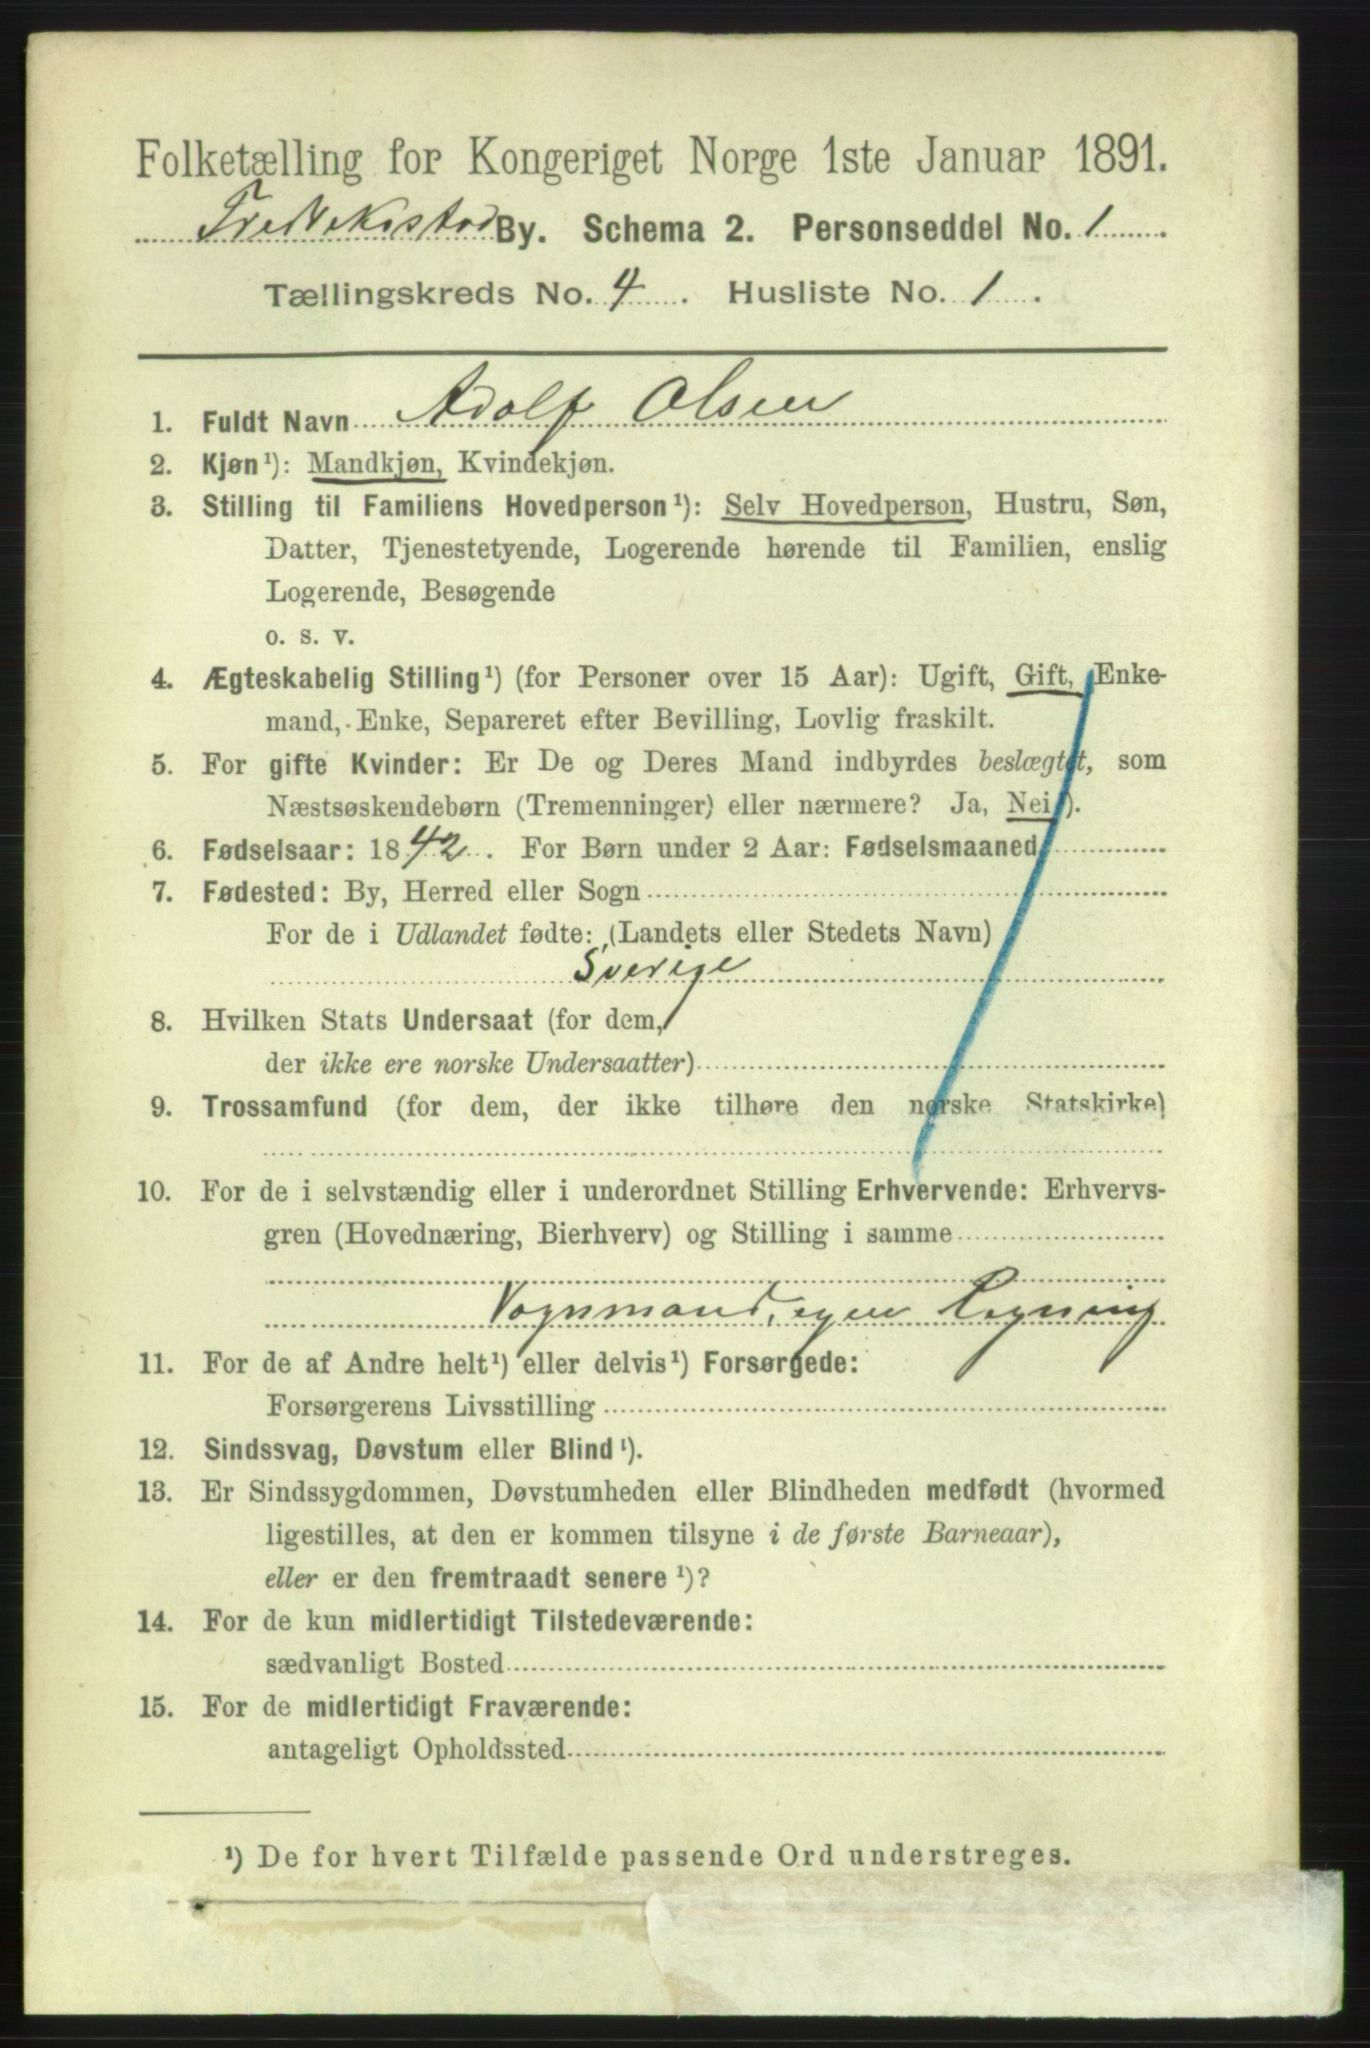 Folketælling for Kongeriget Norge 1ste Januar 1891.
Fredrikstad By. Schema 2. Personseddel No. 1.
Tællingskreds No. 4. Husliste No. 1.
1. Fuldt Navn Adolf Olsen
2. Kjøn¹): Mandkjøn, Kvindekjøn.
3. Stilling til Familiens Hovedperson¹): Selv Hovedperson, Hustru, Søn,
Datter, Tjenestetyende, Logerende hørende til Familien, enslig
Logerende, Besøgende
o. s. v.
4. Ægteskabelig Stilling¹) (for Personer over 15 Aar): Ugift, Gift, Enke-
mand, Enke, Separeret efter Bevilling, Lovlig fraskilt.
5. For gifte Kvinder: Er De og Deres Mand indbyrdes beslægtet, som
Næstsøskendebørn (Tremenninger) eller nærmere? Ja, Nei¹).
6. Fødselsaar: 1842. For Børn under 2 Aar: Fødselsmaaned
7. Fødested: By, Herred eller Sogn
For de i Udlandet fødte: (Landets eller Stedets Navn)
Sverige
8. Hvilken Stats Undersaat (for dem,
der ikke ere norske Undersaatter)
9. Trossamfund (for dem, der ikke tilhøre den norske Statskirke)
10. For de i selvstændig eller i underordnet Stilling Erhvervende: Erhvervs-
gren (Hovednæring, Bierhverv) og Stilling i samme
Vognmand, egen Regning
11. For de af Andre helt¹) eller delvis¹) Forsørgede:
Forsørgerens Livsstilling
12. Sindssvag, Døvstum eller Blind¹).
13. Er Sindssygdommen, Døvstumheden eller Blindheden medfødt (hvormed
ligestilles, at den er kommen tilsyne i de første Barneaar),
eller er den fremtraadt senere¹)?
14. For de kun midlertidigt Tilstedeværende:
sædvanligt Bosted
15. For de midlertidigt Fraværende:
antageligt Opholdssted
¹) De for hvert Tilfælde passende Ord understreges.